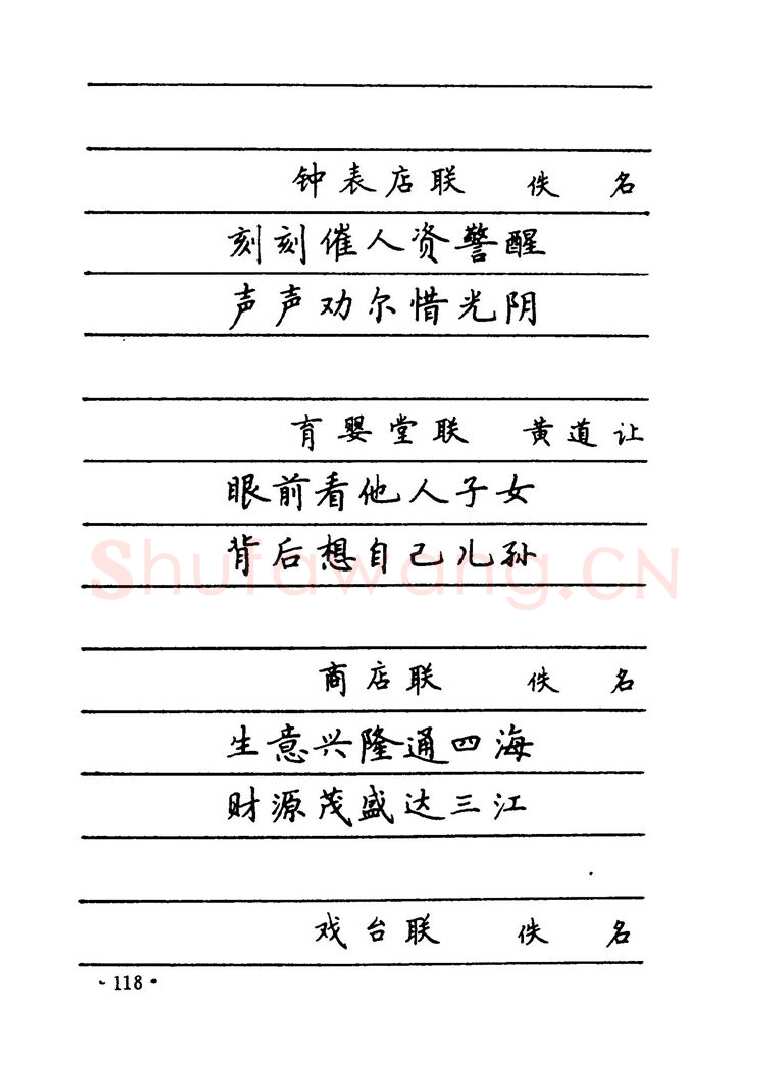 钟表店联 佚名
刻刻催人资警醒
声声劝尔惜光阴
育婴堂联 黄道让
眼前看他人子女
背后想自己儿孙
Shufawang.CN
商店联 佚名
生意兴隆通四海
财源茂盛达三江
戏台联 佚名
·118·